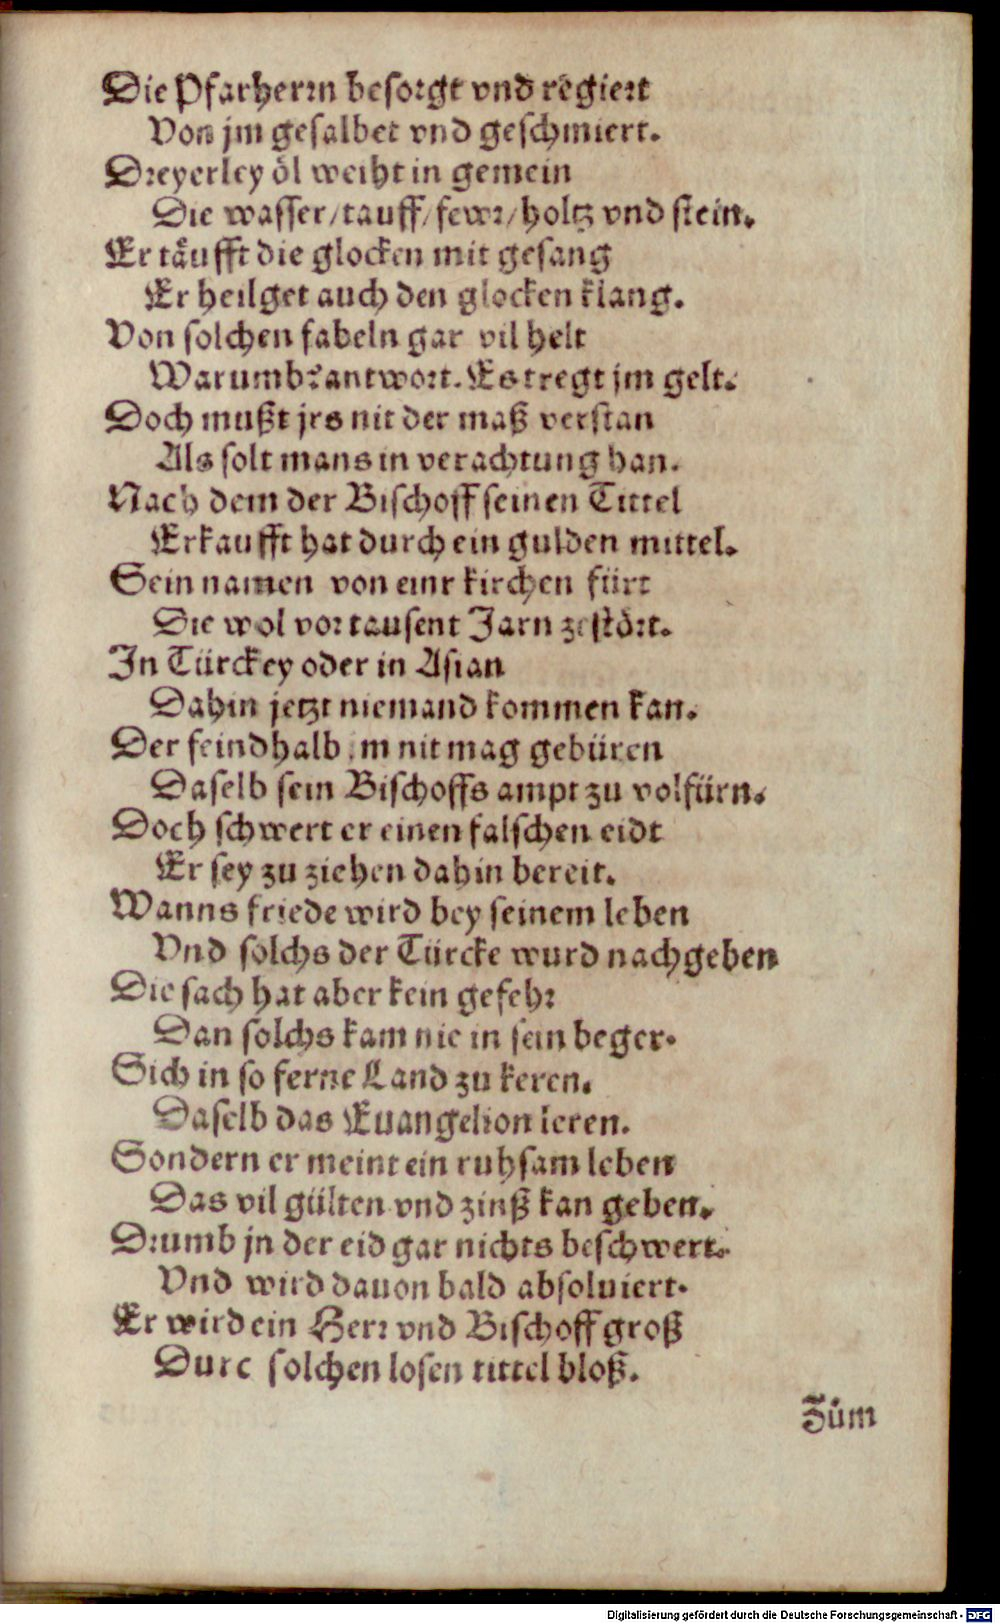 Die Pfarherrn besorgt vnd regiert
Von jm gesalbet vnd geschmiert.
Dreyerley öl weiht in gemein
Die wasser/tauff/fewr/holtz vnd stein.
Er täufft die glocken mit gesang
Er heilget auch den glocken klang.
Von solchen fabeln gar vil helt
Warumb? antwort. Es tregt jm gelt.
Doch mußt jrs nit der maß verstan
Als solt mans in verachtung han.
Nach dem der Bischoff seinen Tittel
Erkaufft hat durch ein gulden mittel.
Sein namen von einr kirchen fürt
Die wol vor tausent Jarn zestört.
In Türckey oder in Asian
Dahin jetzt niemand kommen kan.
Der feindhalb jm nit mag gebüren
Daselb sein Bischoffs ampt zu volfürn.
Doch schwert er einen falschen eidt
Er sey zu ziehen dahin bereit.
Wanns friede wird bey seinem leben
Vnd solchs der Türcke wurd nachgeben
Die sach hat aber kein gefehr
Dan solchs kam nie in sein beger.
Sich in so ferne Land zu keren.
Daselb das Euangelion leren.
Sondern er meint ein ruhsam leben
Das vil gülten vnd zinß kan geben.
Drumb jn der eid gar nichts beschwert.
Vnd wird dauon bald absoluiert.
Er wird ein Herr vnd Bischoff groß
Durc solchen losen tittel bloß.
Zům
Digitalisierung gefördert durch die Deutsche Forschungsgemeinschaft - DFG